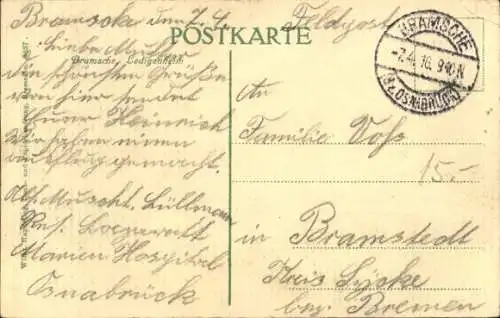 Bramsche den 7.4.
Feldpost
POSTKARTE
Bramsche, Ledigenheim
Liebe Mutter
die schönsten Grüße
von hier sendet
Euer Heinrich
Wir haben einen
Ausflug gemacht.
Abs. Muskt. Lüllmann
Res. Lazarett
Marien Hospital
Osnabrück
BRAMSCHE
-7.4.16. 9-10 N
(Bz. OSNABRÜCK)
An
Familie Voss
15.-
in Bramstedt
Kreis Syke
bez. Bremen